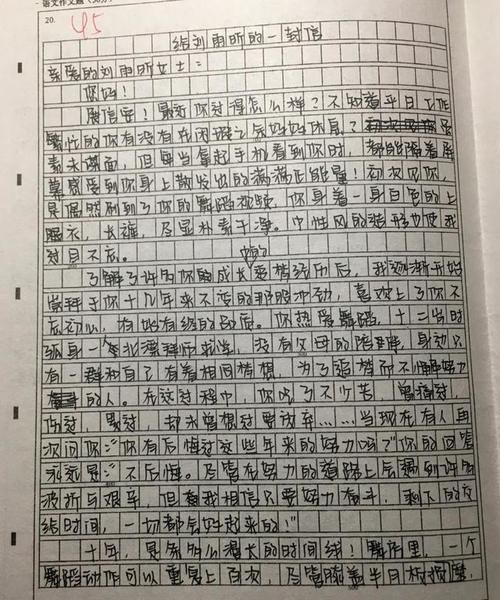 语文作文题
20.
45
给刘雨昕的一封信
亲爱的刘雨昕女士：
你好！
展信安！最近你过得怎么样？不知道平日工作
繁忙的你有没有在闲暇之余好好休息？
素未谋面，但每当拿起手机看到你时，都能隔着屏
幕感受到你身上散发出的满满正能量！初次见你，
是偶然刷到了你的舞蹈视频，你身着一身白色的上
衣，长裤，尽显朴素干净。中性风的造形也使我
过目不忘。
了解了许多你的成长受挫经历后，我逐渐开始
崇拜于你十几年来不变的那股冲劲，喜欢上了你不
忘初心，有始有终的品质。你热爱舞蹈，十二岁时
孤身一人北漂拜师求学，没有父母的陪伴，身边只
有一群和自己有着相同梦想，为了梦想而不懈努力
的人。在这过程中，你吃了不少苦，曾痛过，
伤过，累过，却未曾想过要放弃……当现在有人再
次问你：“你有后悔过这些年来的努力吗？”你的回答
永远是：不后悔。尽管在努力的道路上会遇到许多
波折与艰辛，但我相信只要努力奋斗，剩下的交
给时间，一切都会好起来的！”
十年，是多么漫长的时间线！舞房里，一个
舞蹈动作可以重复上百次，尽管膝盖半月板损磨，